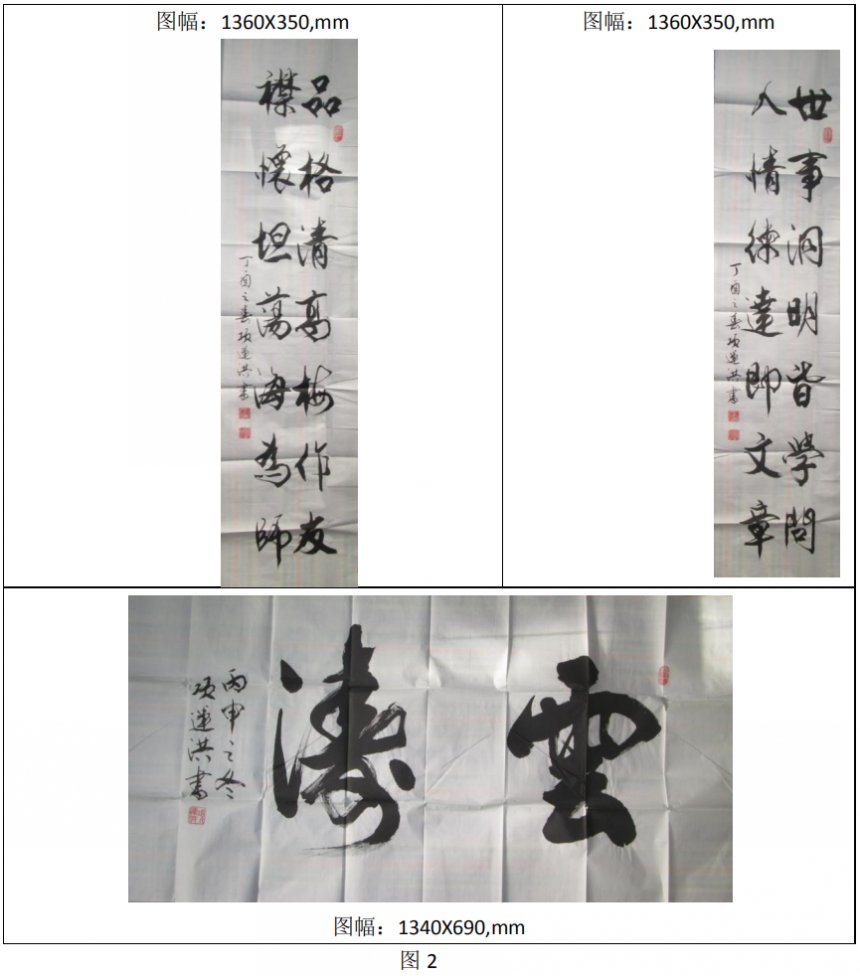 图幅：1360X350,mm
品格清高梅作友
襟懷坦蕩海為師
丁酉之春项莲洪書
图幅：1360X350,mm
世事洞明皆學問
人情練達即文章
丁酉之春项莲洪書
雲濤
丙申之冬
项莲洪書
图幅：1340X690,mm
图 2